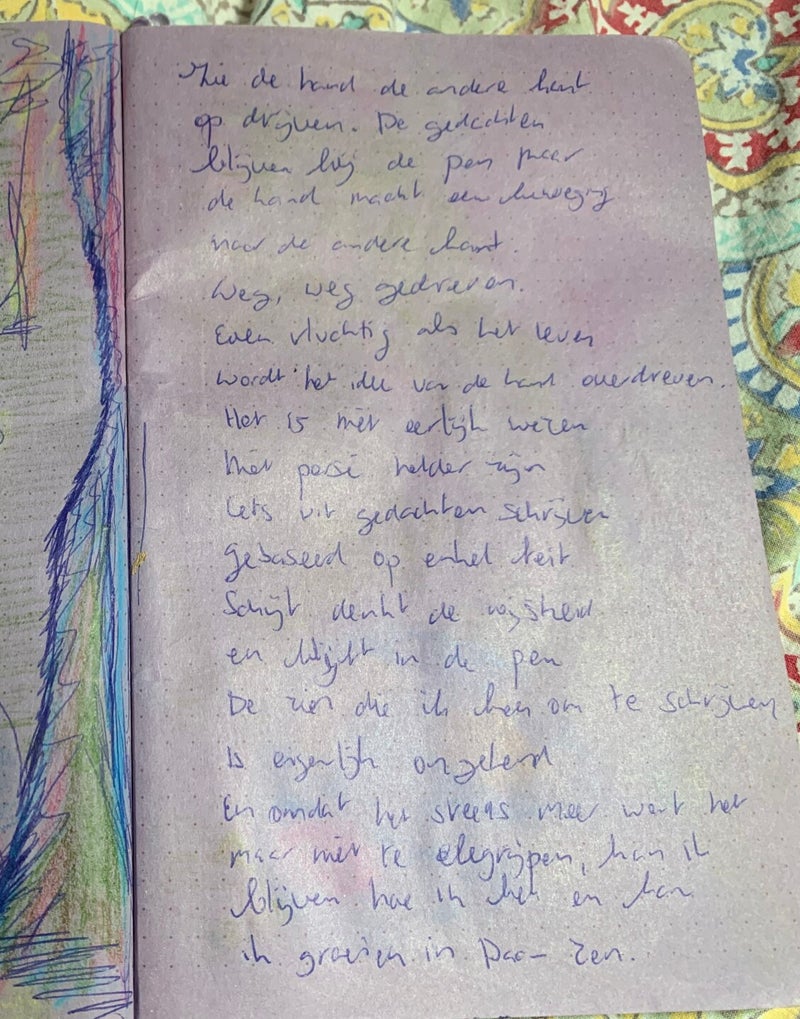 Zie de hand de andere kant
op drijven. De gedachten
blijven bij de pen maar
de hand maakt een beweging
naar de andere kant.
Weg, weg gedreven.
Even vluchtig als het leven
wordt het idee van de hand overdreven.
Het is niet eerlijk wezen
Niet persé helder zijn
Iets uit gedachten schrijven
Gebaseerd op enkel feit
Schijt denkt de wijsheid
en blijft in de pen
De zien die ik ken om te schrijven
Is eigenlijk ongekend
En omdat het steeds meer went het
maar niet te begrijpen, kan ik
blijven hoe ik ben en kan
ik groeien in Dao- Zen.